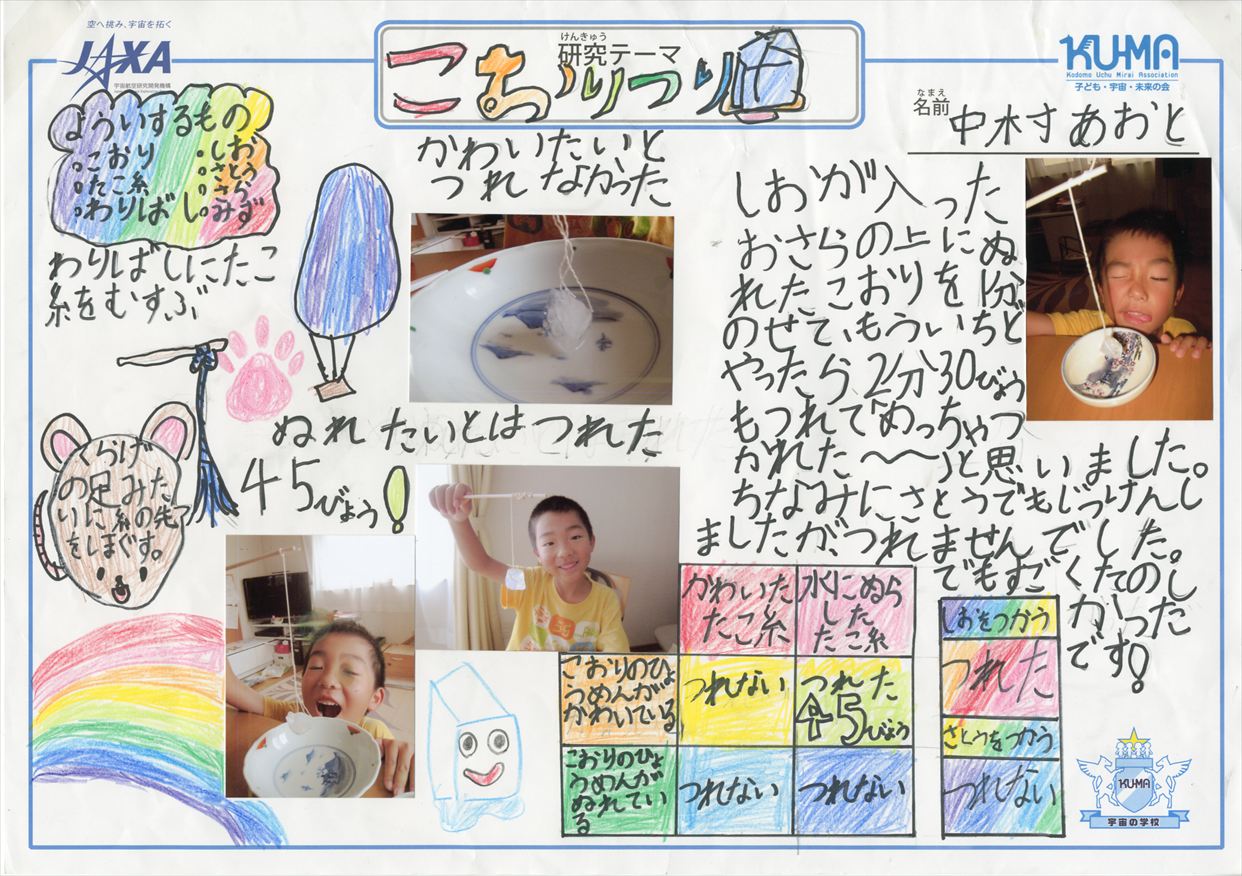 空へ挑み、宇宙を拓く
JAXA
宇宙航空研究開発機構
けんきゅう
研究テーマ
こおりつり
KU-MA
Kodomo Uchu Mirai Association
子ども・宇宙・未来の会
なまえ
名前
中村あおと
よういするもの
・こおり
・たこ糸
・わりばし
・しお
・さとう
・さら
・みず
わりばしにたこ
糸をむすぶ
らげ
の足みた
いに糸の先
をほぐす。
かわいたいと
つれなかった
ぬれたいとはつれた
45びょう!
しおが入った
おさらの上にぬ
れたこおりを1分
のせて、もういちど
やったら、2分30びょう
もつれてめっちゃつ
かれた～～と思いました。
ちなみにさとうでもじっけんし
ましたが、つれませんでした。
でもすごくたのし
かった
です!
かわいた
たこ糸
水にぬら
した
たこ糸
こおりのひょ
うめんが
かわいている
つれない
つれた
45びょう
こおりのひょ
うめんが
ぬれてい
る
つれない
つれない
しおをつかう
つれた
さとうをつかう
つれない
KUMA
宇宙の学校